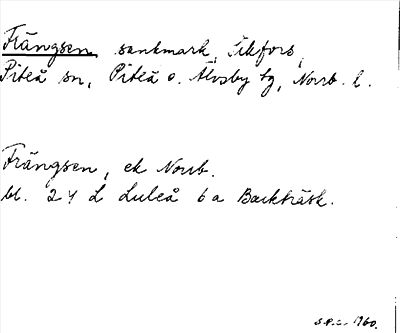 Frängsen sankmark, Sikfors,
Piteå sn, Piteå o. Älvsby tg, Norrb. l.
Frängsen, ek Norrb.
bl. 24 L Luleå 6a Backträsk.
S.P.L. 1960.